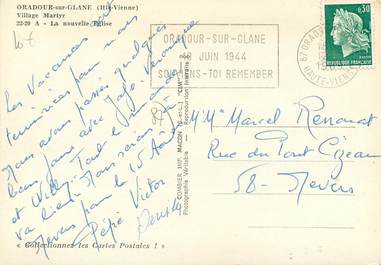 ORADOUR-sur-GLANE (Hte-Vienne)
Village Martyr
22-20 A - La nouvelle Eglise
ORADOUR-SUR-GLANE
JUIN 1944
SOUVIENS-TOI REMEMBER
0.30
REPUBLIQUE FRANCAISE
HAUTE-VIENNE
Les Vacances
terminées pour nous
Nous avons passés quelques
bons jours avec
et Willy. Tout le monde
va bien. Nous serons
Nevers pour le 15 Août
Pépé Victor
COMBIER IMP. MACON (S.-et-L.) "CIM"
Photographie Véritable - Reproduction Interdite
M. Mme Marcel Renouat
Rue du Pont Cizeau
58 - Nevers
« Collectionnez les Cartes Postales ! »